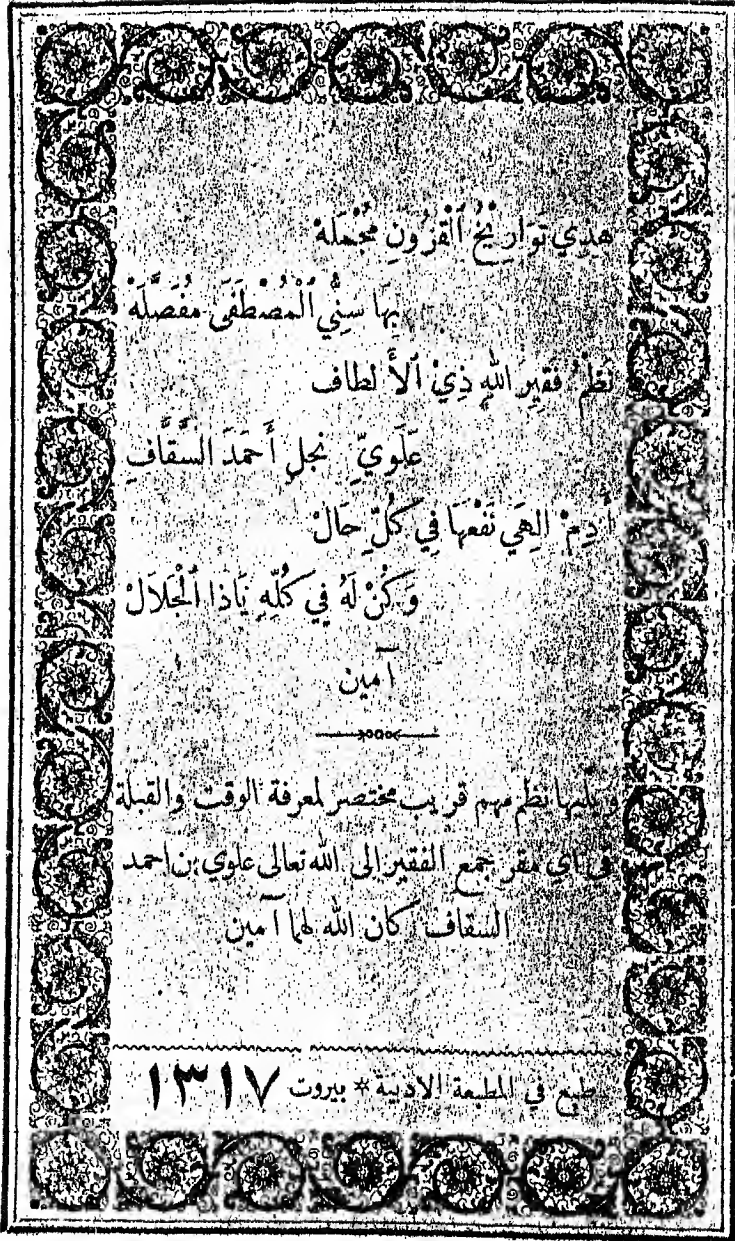 هذِي تَوَارِيْخُ ٱلْقُرُونِ مُجْمَلَهْ
بِهَا سِنِيُّ ٱلْمُصْطَفَى مُفَصَّلَهْ
نَظْمُ فَقِيرِ اللهِ ذِيْ ٱلأَلطاف
عَلَوِيِّ نجلِ أَحمَدَ السَّقَّافِ
أَدِمْ الهِي نَفْعَهَا فِي كُلِّ حَالْ
وَكُنْ لَهُ فِي كُلِّهِ يَاذَا ٱلْجَلَالْ
آمين
ويليها نظم مهم قريب مختصر لمعرفة الوقت والقبلة
في اي مقر جمع الفقير الى الله تعالى علوي بن احمد
السقاف كان الله لهما آمين
طبع في المطبعة الادبية * بيروت ١٣١٧